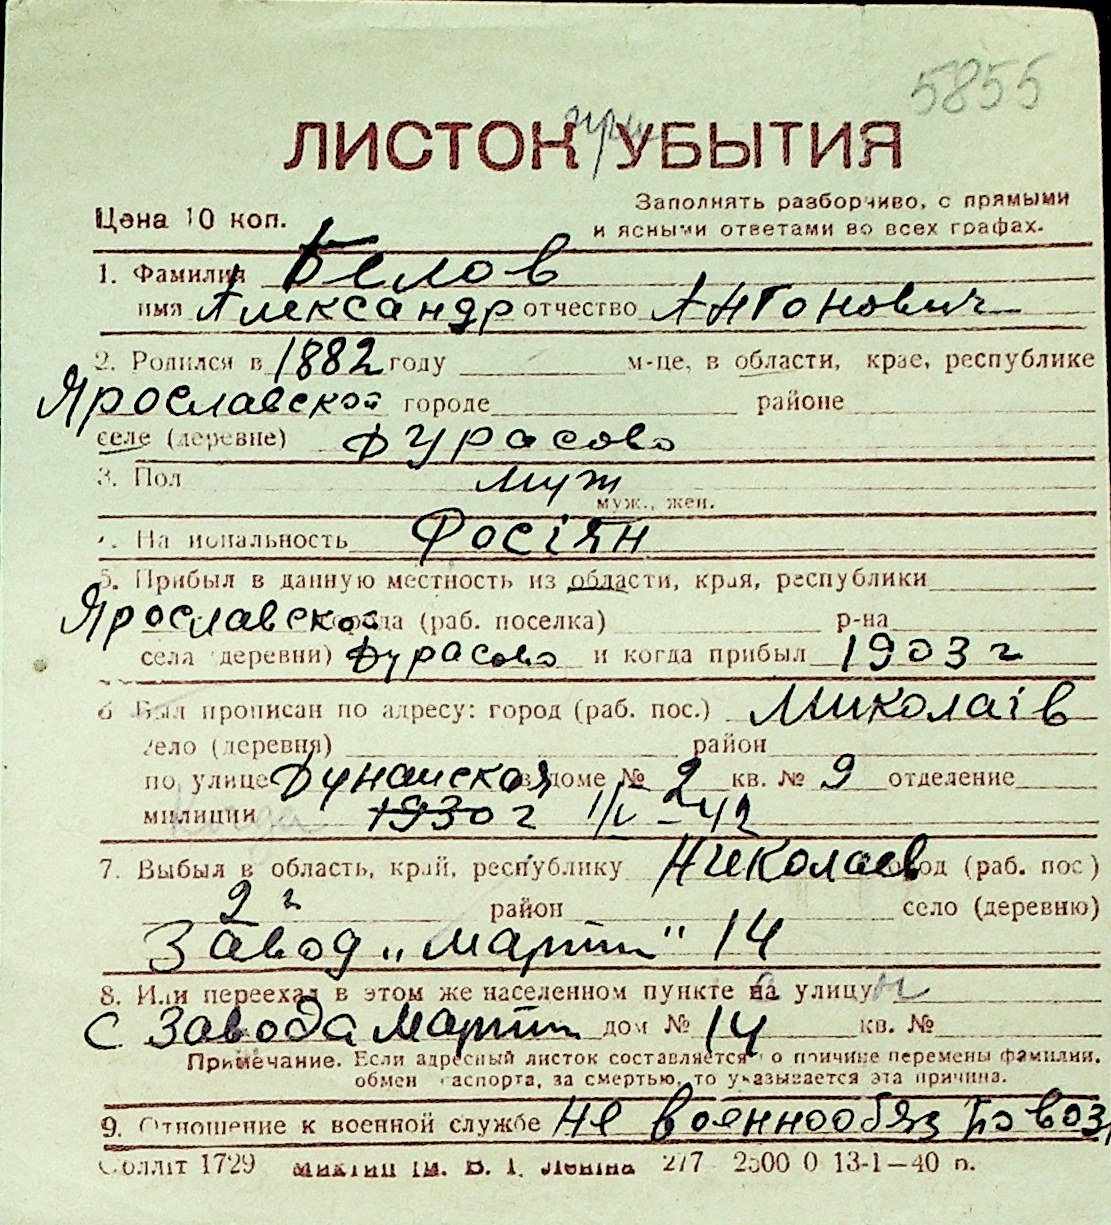 5855
ЛИСТОК УБЫТИЯ
Цена 10 коп.
Заполнять разборчиво, с прямыми
и ясными ответами во всех графах.
1. Фамилия Белов
имя Александр отчество Антонович
2. Родился в 1882 году м-це, в области, крае, республике
Ярославской городе районе
селе (деревне) Дурасово
3. Пол муж
муж., жен.
Национальность Росіян
5. Прибыл в данную местность из области, края, республики
Ярославской города (раб. поселка) р-на
села (деревни) Дурасово и когда прибыл 1903 г
6 Был прописан по адресу: город (раб. пос.) Миколаів
село (деревня) район
по улице Дунайской в доме № 2 кв. № 9 отделение
милиции 1930 г 1/V-42
7. Выбыл в область, край, республику Николаев город (раб. пос)
2 г район село (деревню)
Завод „Марти" 14
8. Или переехал в этом же населенном пункте на улицу
с Завода Марти дом № 14 кв. №
Примечание. Если адресный листок составляется по причине перемены фамилии,
обмен паспорта, за смертью, то указывается эта причина.
9. Отношение к военной службе не военнообяз по воз,
Обллiт 1729 ім. В. І. Леніна 277 2500 0 13-1—40 п.